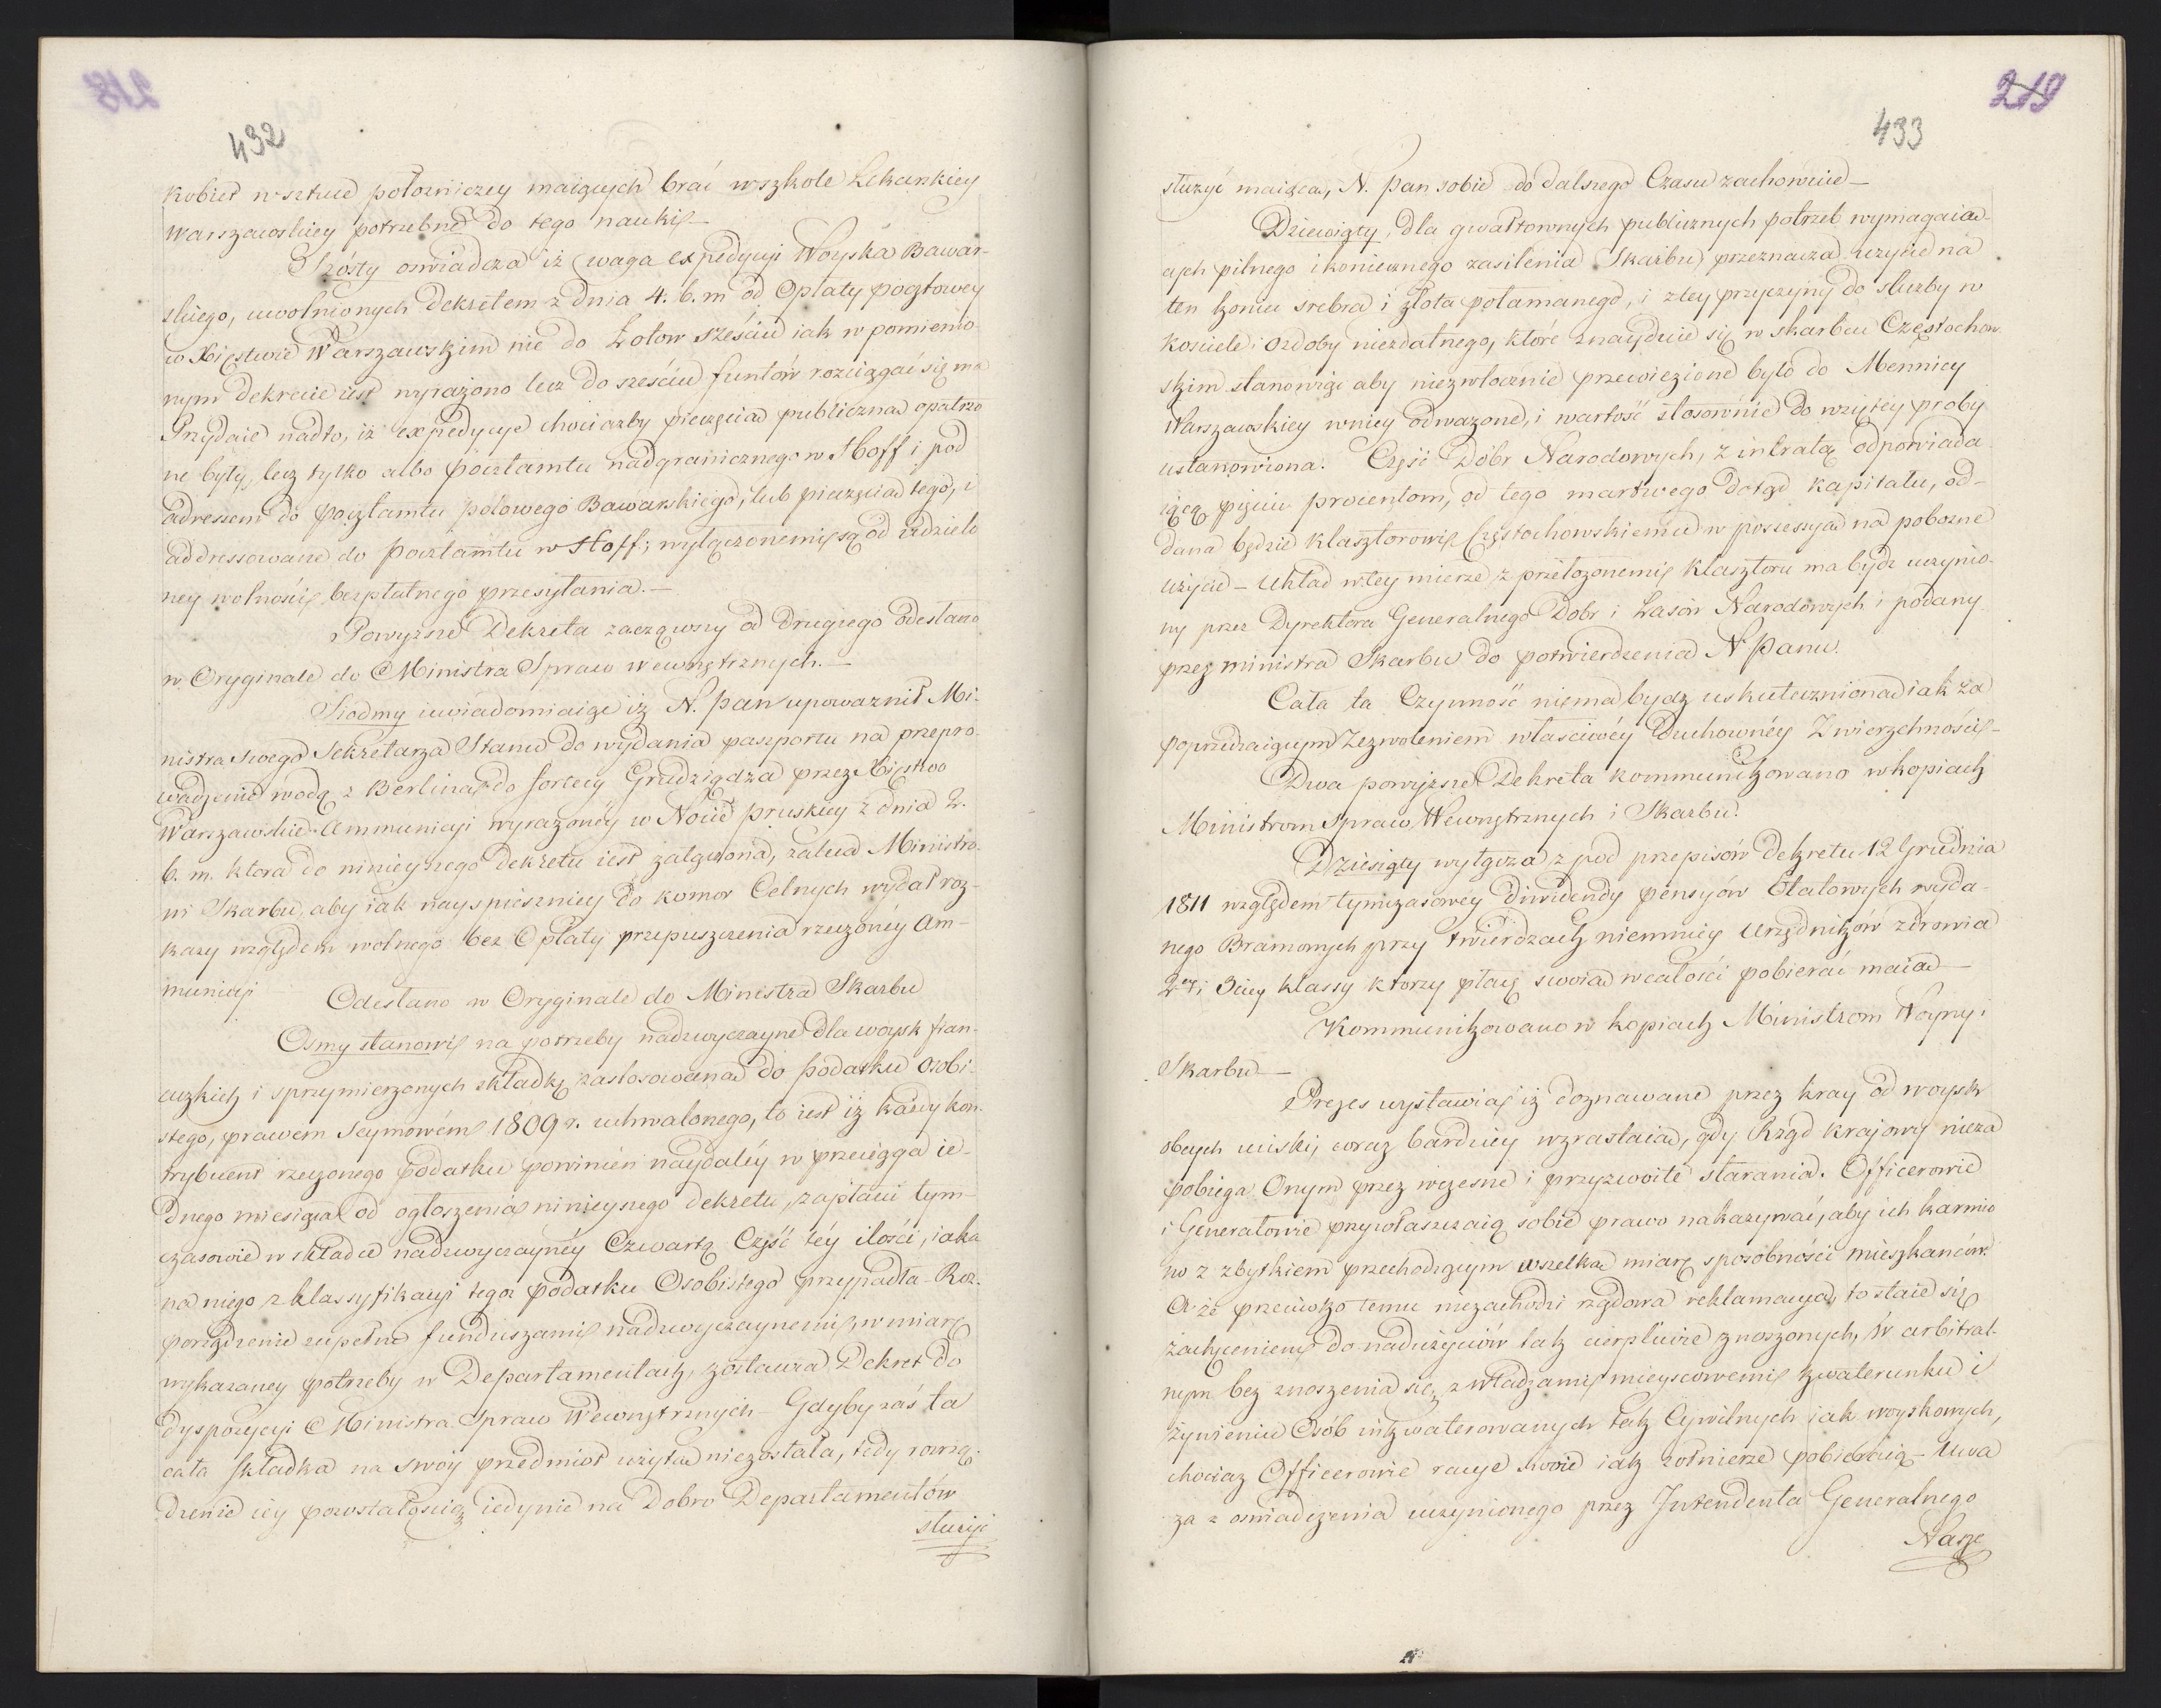 432
kobiet w sztuce położniczey maiących brać w szkole Lekarskiey
Warszawskiey potrzebne do tego nauki –
Szósty oswiadcza iż waga expedycyi Woyska Bawar-
skiego, uwolnionych dekretem z dnia 4. b. m od Opłaty pocztowey
w Xięstwie Warszawskim nie do Łotow sześciu iak w pomienio-
nym dekrecie iest wyrażono lecz do sześciu funtów rozciągać się ma
Przydaie nadto, iż expedycye chociażby pieczęcia publiczna opatrzo
ne były, lecz tylko albo pocztamtu nadgranicznego w Hoff i pod
adressem do pocztamtu polowego Bawarskiego, lub pieczęcia tego, i
addressowane do pocztamtu w Hoff; wyłączonemi są od udzielo
ney wolności bezpłatnego przesyłania. –
Powyższe Dekreta zacząwszy od Drugiego odesłano
w Oryginale do Ministra Spraw wewnętrznych. –
Siodmy uwiadomiaiąc iż N. Pan upoważnił Mi-
nistra swego Sekretarza Stanu do wydania paszportu na przepro-
wadzenie wodą z Berlina do fortecy Grudziądza przez Xięstwo
Warszawskie Ammunicyi wyrażoney w Nocie pruskiey z dnia 2.
b. m. ktora do ninieyszego dekretu iest załączona, zaleca Ministro-
wi Skarbu, aby iak nayspieszniey do komor Celnych wydał roz-
kazy względem wolnego bez Opłaty przepuszczenia rzeczoney Am-
municyi
Odesłano w Oryginale do Ministra Skarbu
Osmy stanowi na potrzeby nadzwyczayne dla woysk fran-
cuzkich i sprzymierzonych składkę zastosowana do podatku osobi-
stego, prawem Seymowém 1809 r. uchwalonego, to iest iż każdy kon-
trybuent rzeczonego podatku powinien naydaléy w przeciągu ie-
dnego miesiąca od ogłoszenia ninieyszego dekretu, zapłacić tym-
czasowie w składce nadzwyczaynéy Czwartą Część téy ilości, iaka
na niego z klassyfikacyi tegoż podatku Osobistego przypadła – Roz-
porządzenie zupełne funduszami nadzwyczaynemi, w miarę
wykazaney potrzeby w Departamentach, zostawia Dekret do
dyspozycyi Ministra Spraw Wewnętrznych – Gdyby zaś ta
cała składka na swoy przedmiot użyta niezostała, tedy rozrzą-
dzenie iey pozostałością iedynie na Dobro Departamentów
służyć
219
433
służyć maiąca, N. Pan sobie do dalszego Czasu zachowuie –
Dziewiąty, dla gwałtownych publicznych potrzeb wymagaia-
cych pilnego i koniecznego zasilenia Skarbu, przeznacza użycie na
ten koniec srebra i złota połamanego, i z tey przyczyny do służby w
kościele i ozdoby niezdatnego, które znayduie się w skarbcu Częstochow-
skim stanowiąc aby niezwłocznie przewiezione było do Mennicy
Warszawskiey w niey odważone, i wartość stosownie do wziętey proby
ustanowiona. Część Dóbr Narodowych, z intratą odpowiada
iącą pięciu procentom, od tego martwego dotąd kapitału, od-
dana będzie klasztorowi Częstochowskiemu w possessya na pobożne
użycie – Układ w tey mierze z przełożonemi klasztoru ma bydz uczynio-
ny przez Dyrektora Generalnego Dobr i Lasów Narodowych i podany
przez ministra Skarbu do potwierdzenia N Panu.
Cała ta Czynność niema bydz uskuteczniona iak za
poprzedzaiącym Zezwoleniem właściwéy Duchownéy Zwierzchności –
Dwa powyższe Dekreta kommunikowano w kopiach
Ministrom Spraw Wewnętrznych i Skarbu.
Dziesiąty wyłącza z pod przepisów dekretu 12 Grudnia
1811 względem tymczasowéy diwidendy pensyów Etatowych wyda-
nego Bramowych przy twierdzach niemniey Urzędników zdrowia
2ey i 3ciey klassy ktorzy płacę swoia w całości pobierać maia –
Kommunikowano w kopiach Ministrom Woyny i
Skarbu –
Prezes wystawia iż doznawane przez kray od woysk
obcych uciski, coraz bardziey wzrastaia, gdy Rząd krajowy nieza
pobiega Onym przez wczesne i przyzwoite starania. Officerowie
i Generałowie przywłaszczaią sobie prawo nakazywać, aby ich karmio
no z zbytkiem przechodzącym wszelka miarę sposobności mieszkańców.
A że przeciwko temu niezachodzi rządowa reklamacya, to staie się
zachęceniem do nadużyciów tak cierpliwie znoszonych, W arbitral-
nym bez znoszenia się z władzami mieyscowemi kwaterunku i
żywieniu Osób inkwaterowanych tak Cywilnych jak woyskowych,
chociaz Officerowie racye swoie iak żołnierze pobieraią – Uwa
ża z oswiadczenia uczynionego przez Intendenta Generalnego